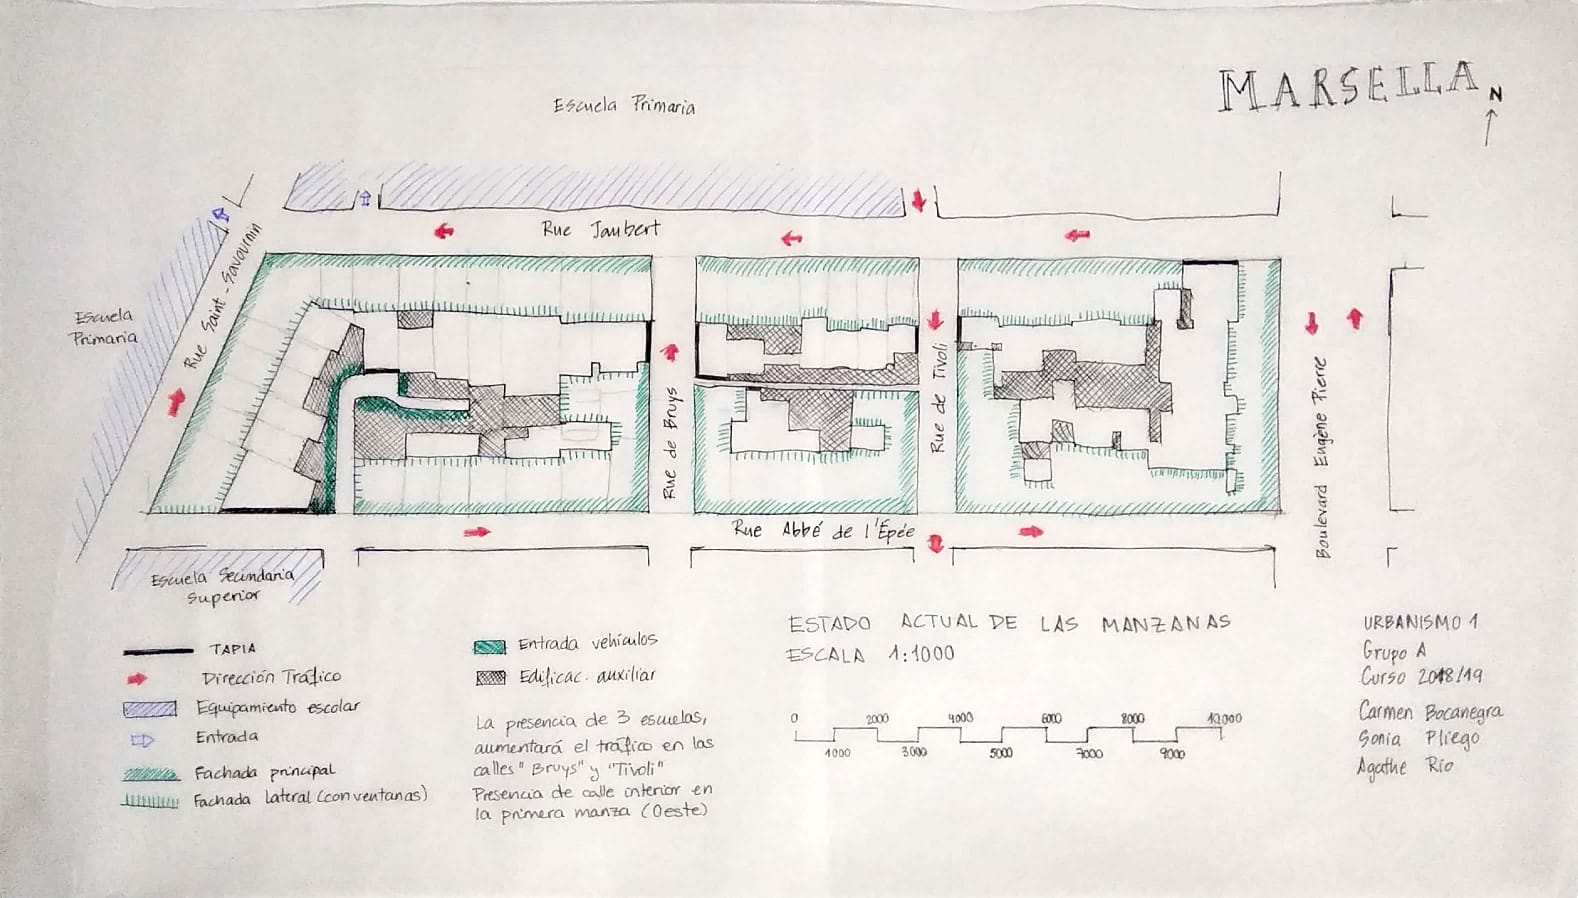 MARSELLA
N
Escuela Primaria
Rue Jaubert
Rue Saint-Savournin
Escuela
Primaria
Rue de Bruys
Rue de Tivoli
Boulevard Eugène Pierre
Rue Abbé de l'Epée
Escuela Secundaria
Superior
TAPIA
Dirección Tráfico
Equipamiento escolar
Entrada
Fachada principal
Fachada lateral (con ventanas)
Entrada vehículos
Edificac. auxiliar
La presencia de 3 escuelas,
aumentará el tráfico en las
calles "Bruys" y "Tivoli"
Presencia de calle interior en
la primera manza (Oeste)
ESTADO ACTUAL DE LAS MANZANAS
ESCALA 1:1000
0 2000 4000 6000 8000 10,000
1000 3000 5000 7000 9000
URBANISMO 1
Grupo A
Curso 2018/19
Carmen Bocanegra
Sonia Pliego
Agathe Rio